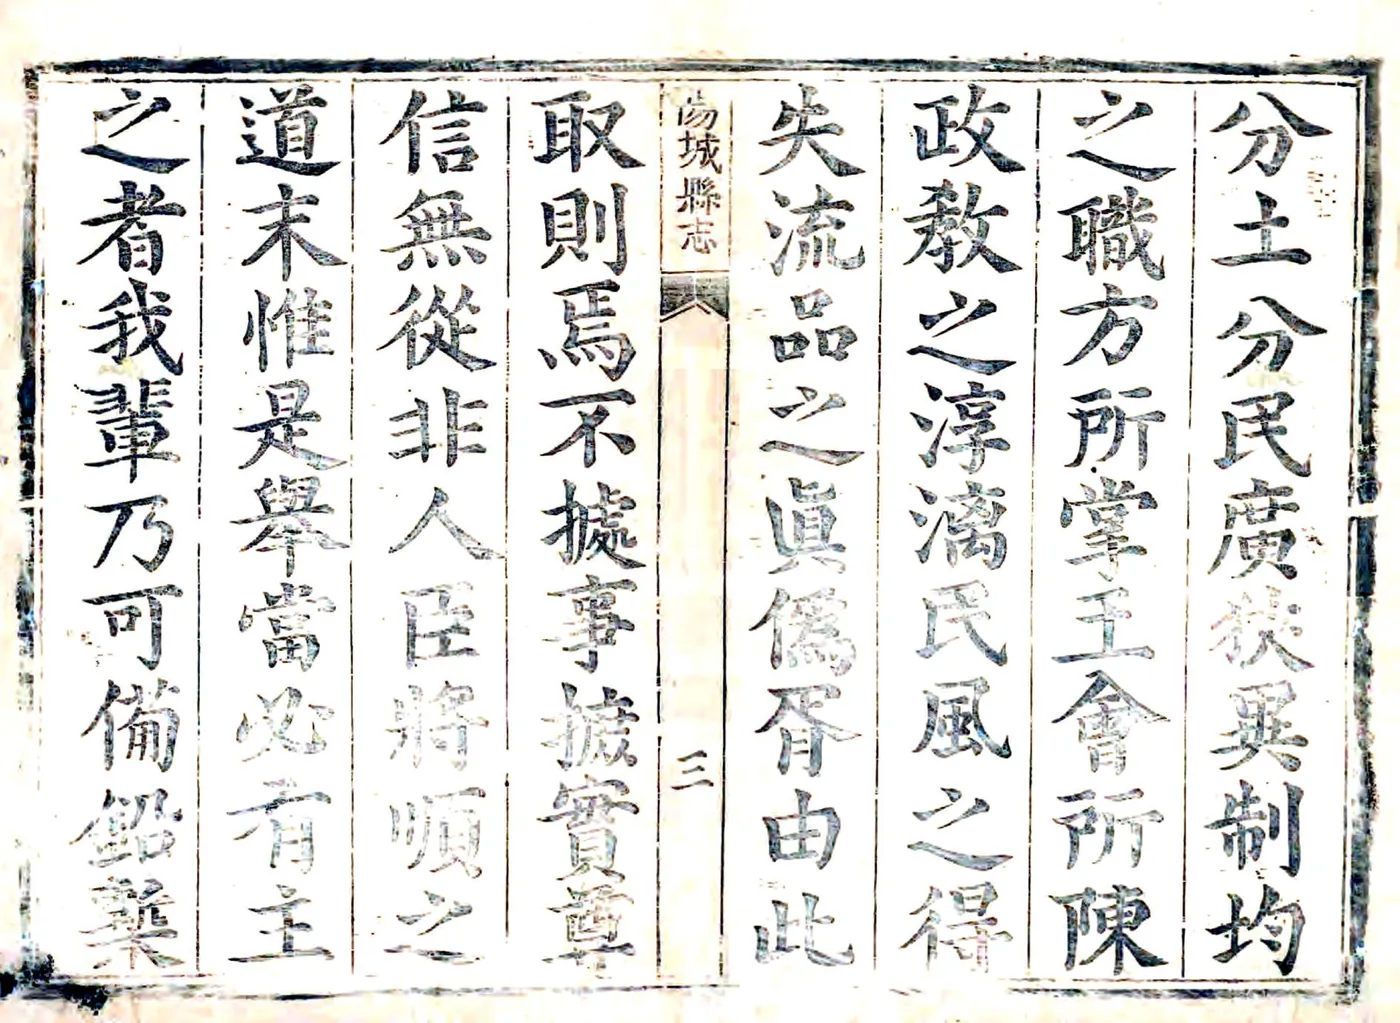 分土分民廣狹異制均
之職方所掌王會所陳
政教之淳漓民風之得
失流品之眞僞胥由此
陽城縣志
三
取則焉不據事摭實尊
信無從非人臣將順之
道末惟是舉當必有主
之者我輩乃可備鉛槧